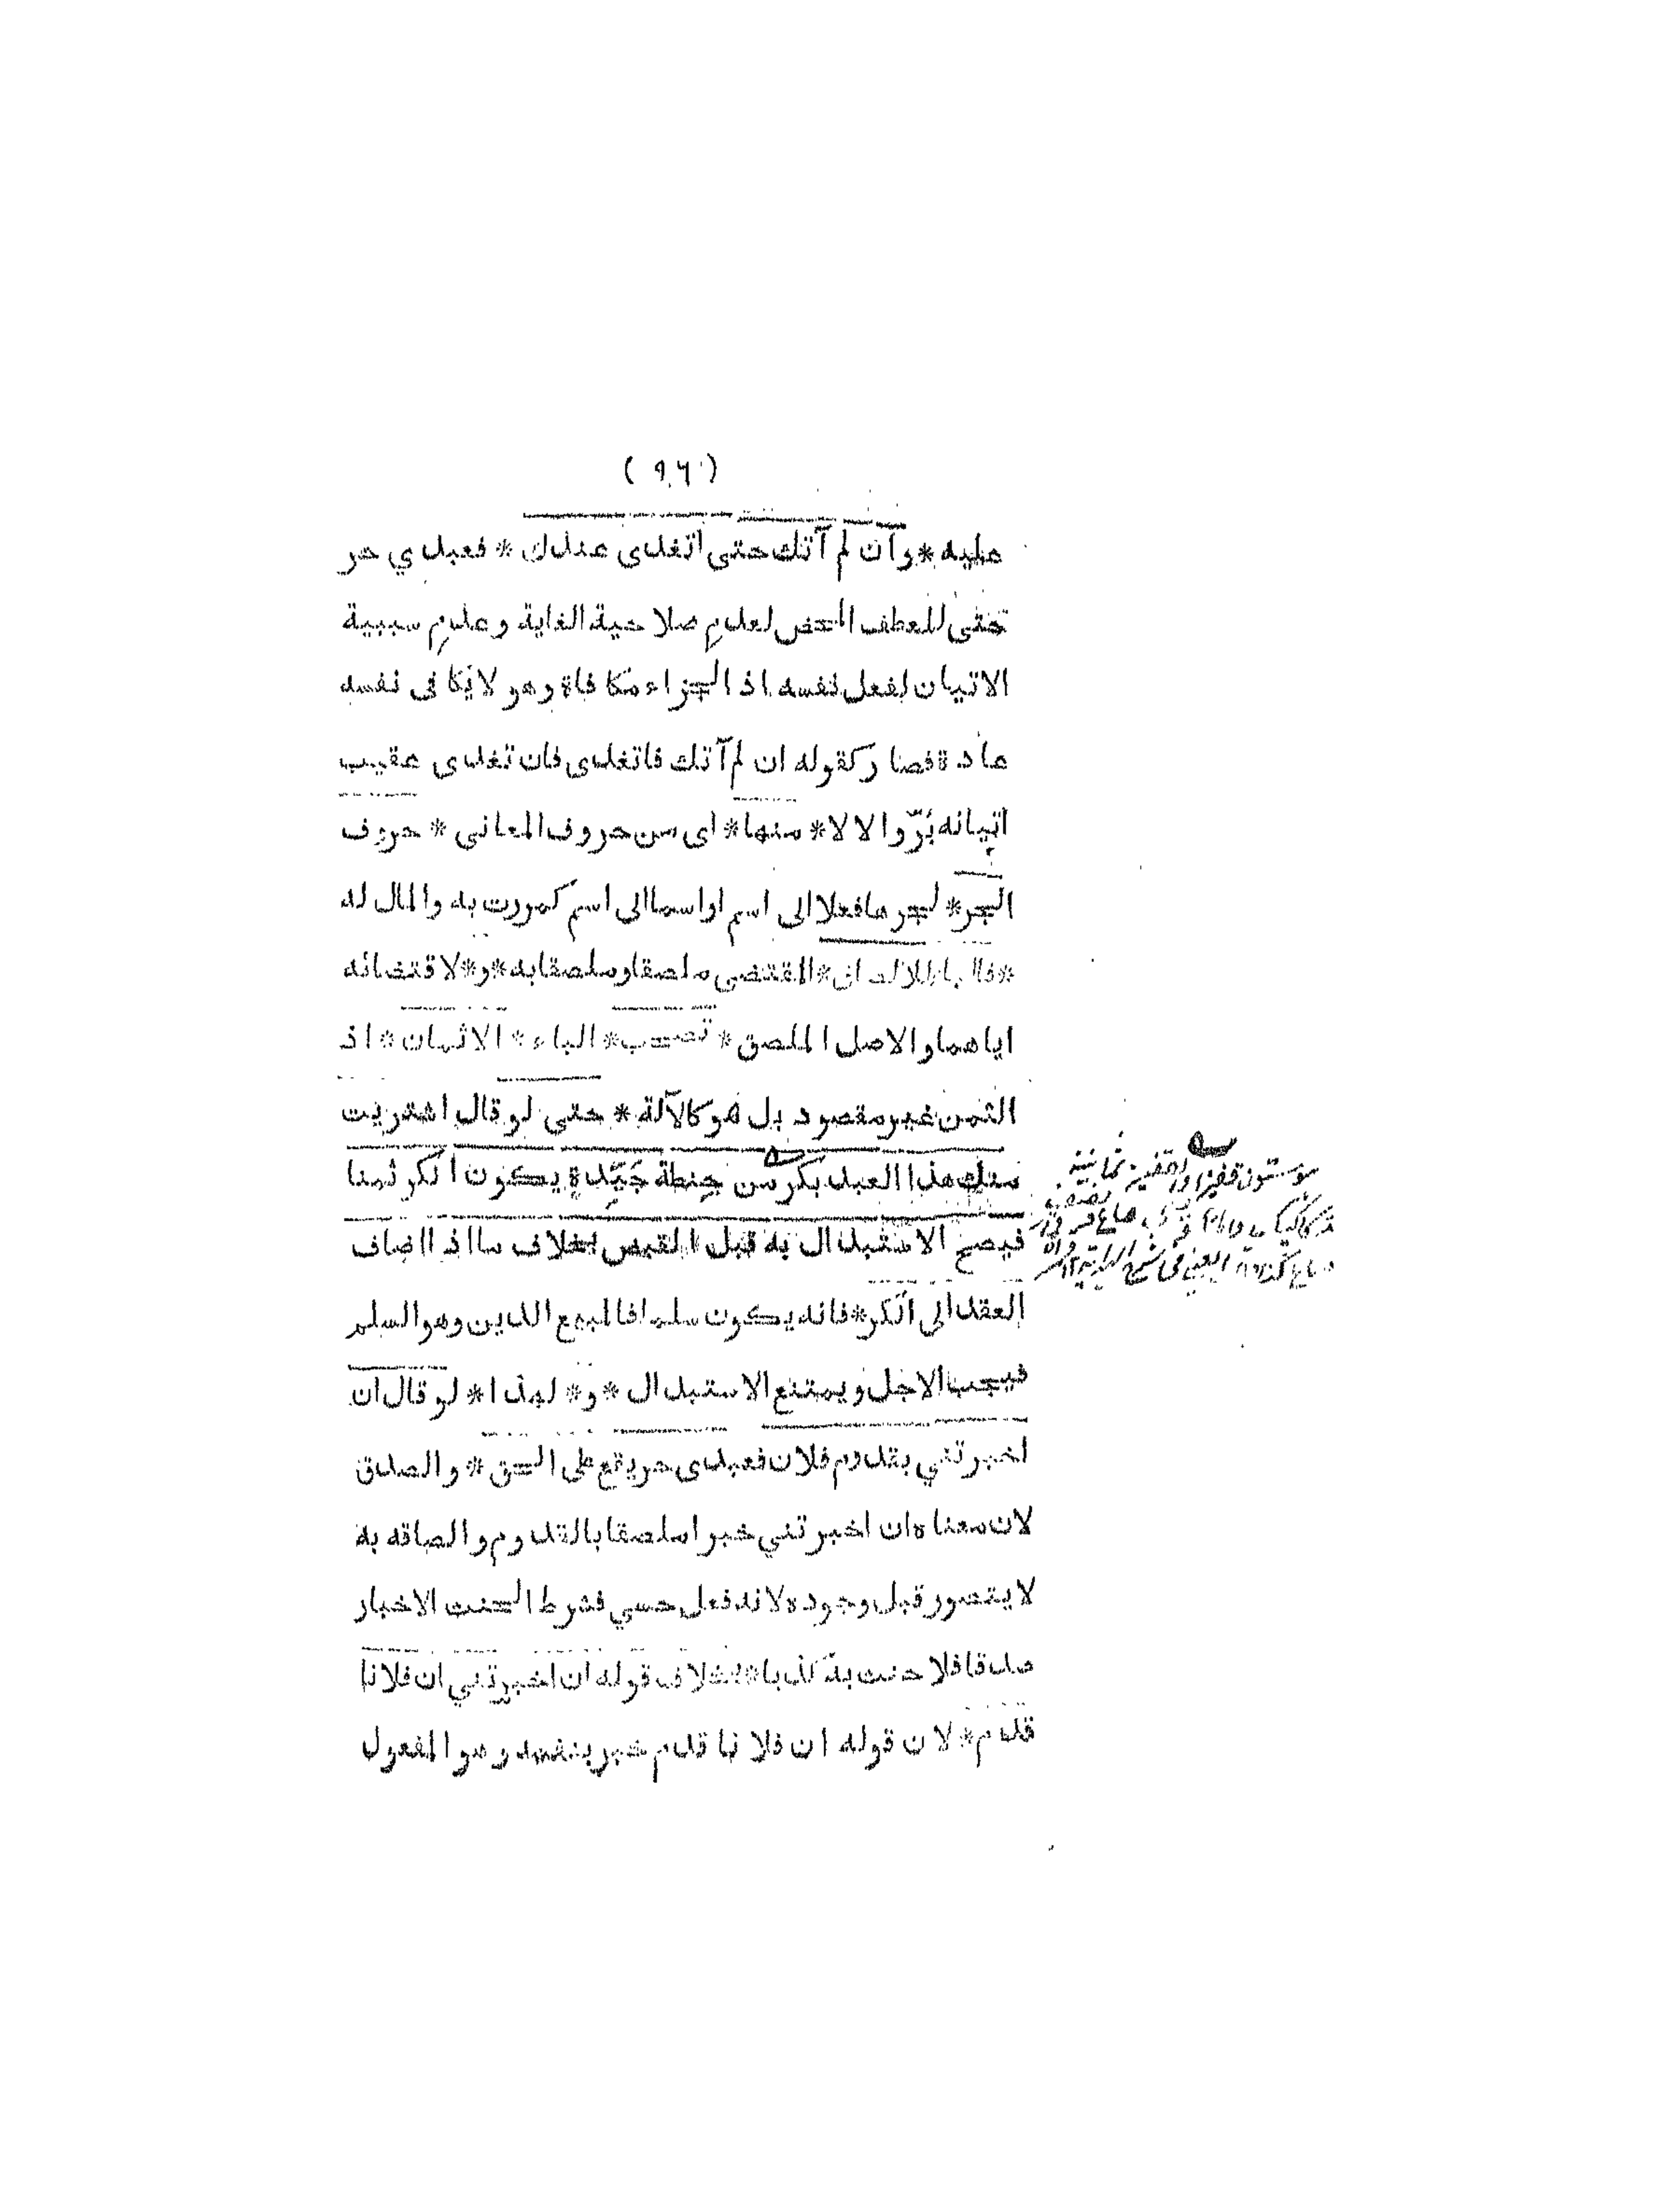 ( ٩٦ )
عليه * وان لم آتك حتى اتغدى عندك * فعبدي حر
حتى للعطف المحض لعدم صلاحية الغاية وعدم سببية
الاتيان لفعل نفسه اذ الجزاء مكافاة وهو لا يكافى نفسه
عادة فصار كقوله ان لم آتك فاتغدى فان تغدى عقيب
اتيانه برّ والا لا * منها * اى من حروف المعاني * حروف
الجر * لجرها فعلا الى اسم او اسما الى اسم كمررت به والمال له
* فالباء للالصاق * المقتضى ملصقا وملصقا به * و * لاقتضائه
اياهما والاصل الملصق * تصحب * الباء * الاثمان * اذ
الثمن غير مقصود بل هو كالآلة * حتى لو قال اشتريت
منك هذا العبد بكر من حنطة جَيّدة يكون الكر ثمنا
فيصح الاستبدال به قبل القبض بخلاف ما اذا اضاف
العقد الى الكر * فانه يكون سلما فالمبيع الدين وهو السلم
فيجب الاجل ويمتنع الاستبدال * و * لهذا * لو قال ان
اخبرتني بقدوم فلان فعبدى حر يقع على الحق * والصدق
لان معناه ان اخبرتني خبرا ملصقا بالقدوم والصاقه به
لا يتصور قبل وجوده لانه فعل حسي فشرط الحنث الاخبار
صدقا فلا حنث به كذبا * بخلاف قوله ان اخبرتني ان فلانا
قدم * لان قوله ان فلانا قدم خبر بنفسه وهو المفعول
ستون قفيزا والقفيز ثمانية